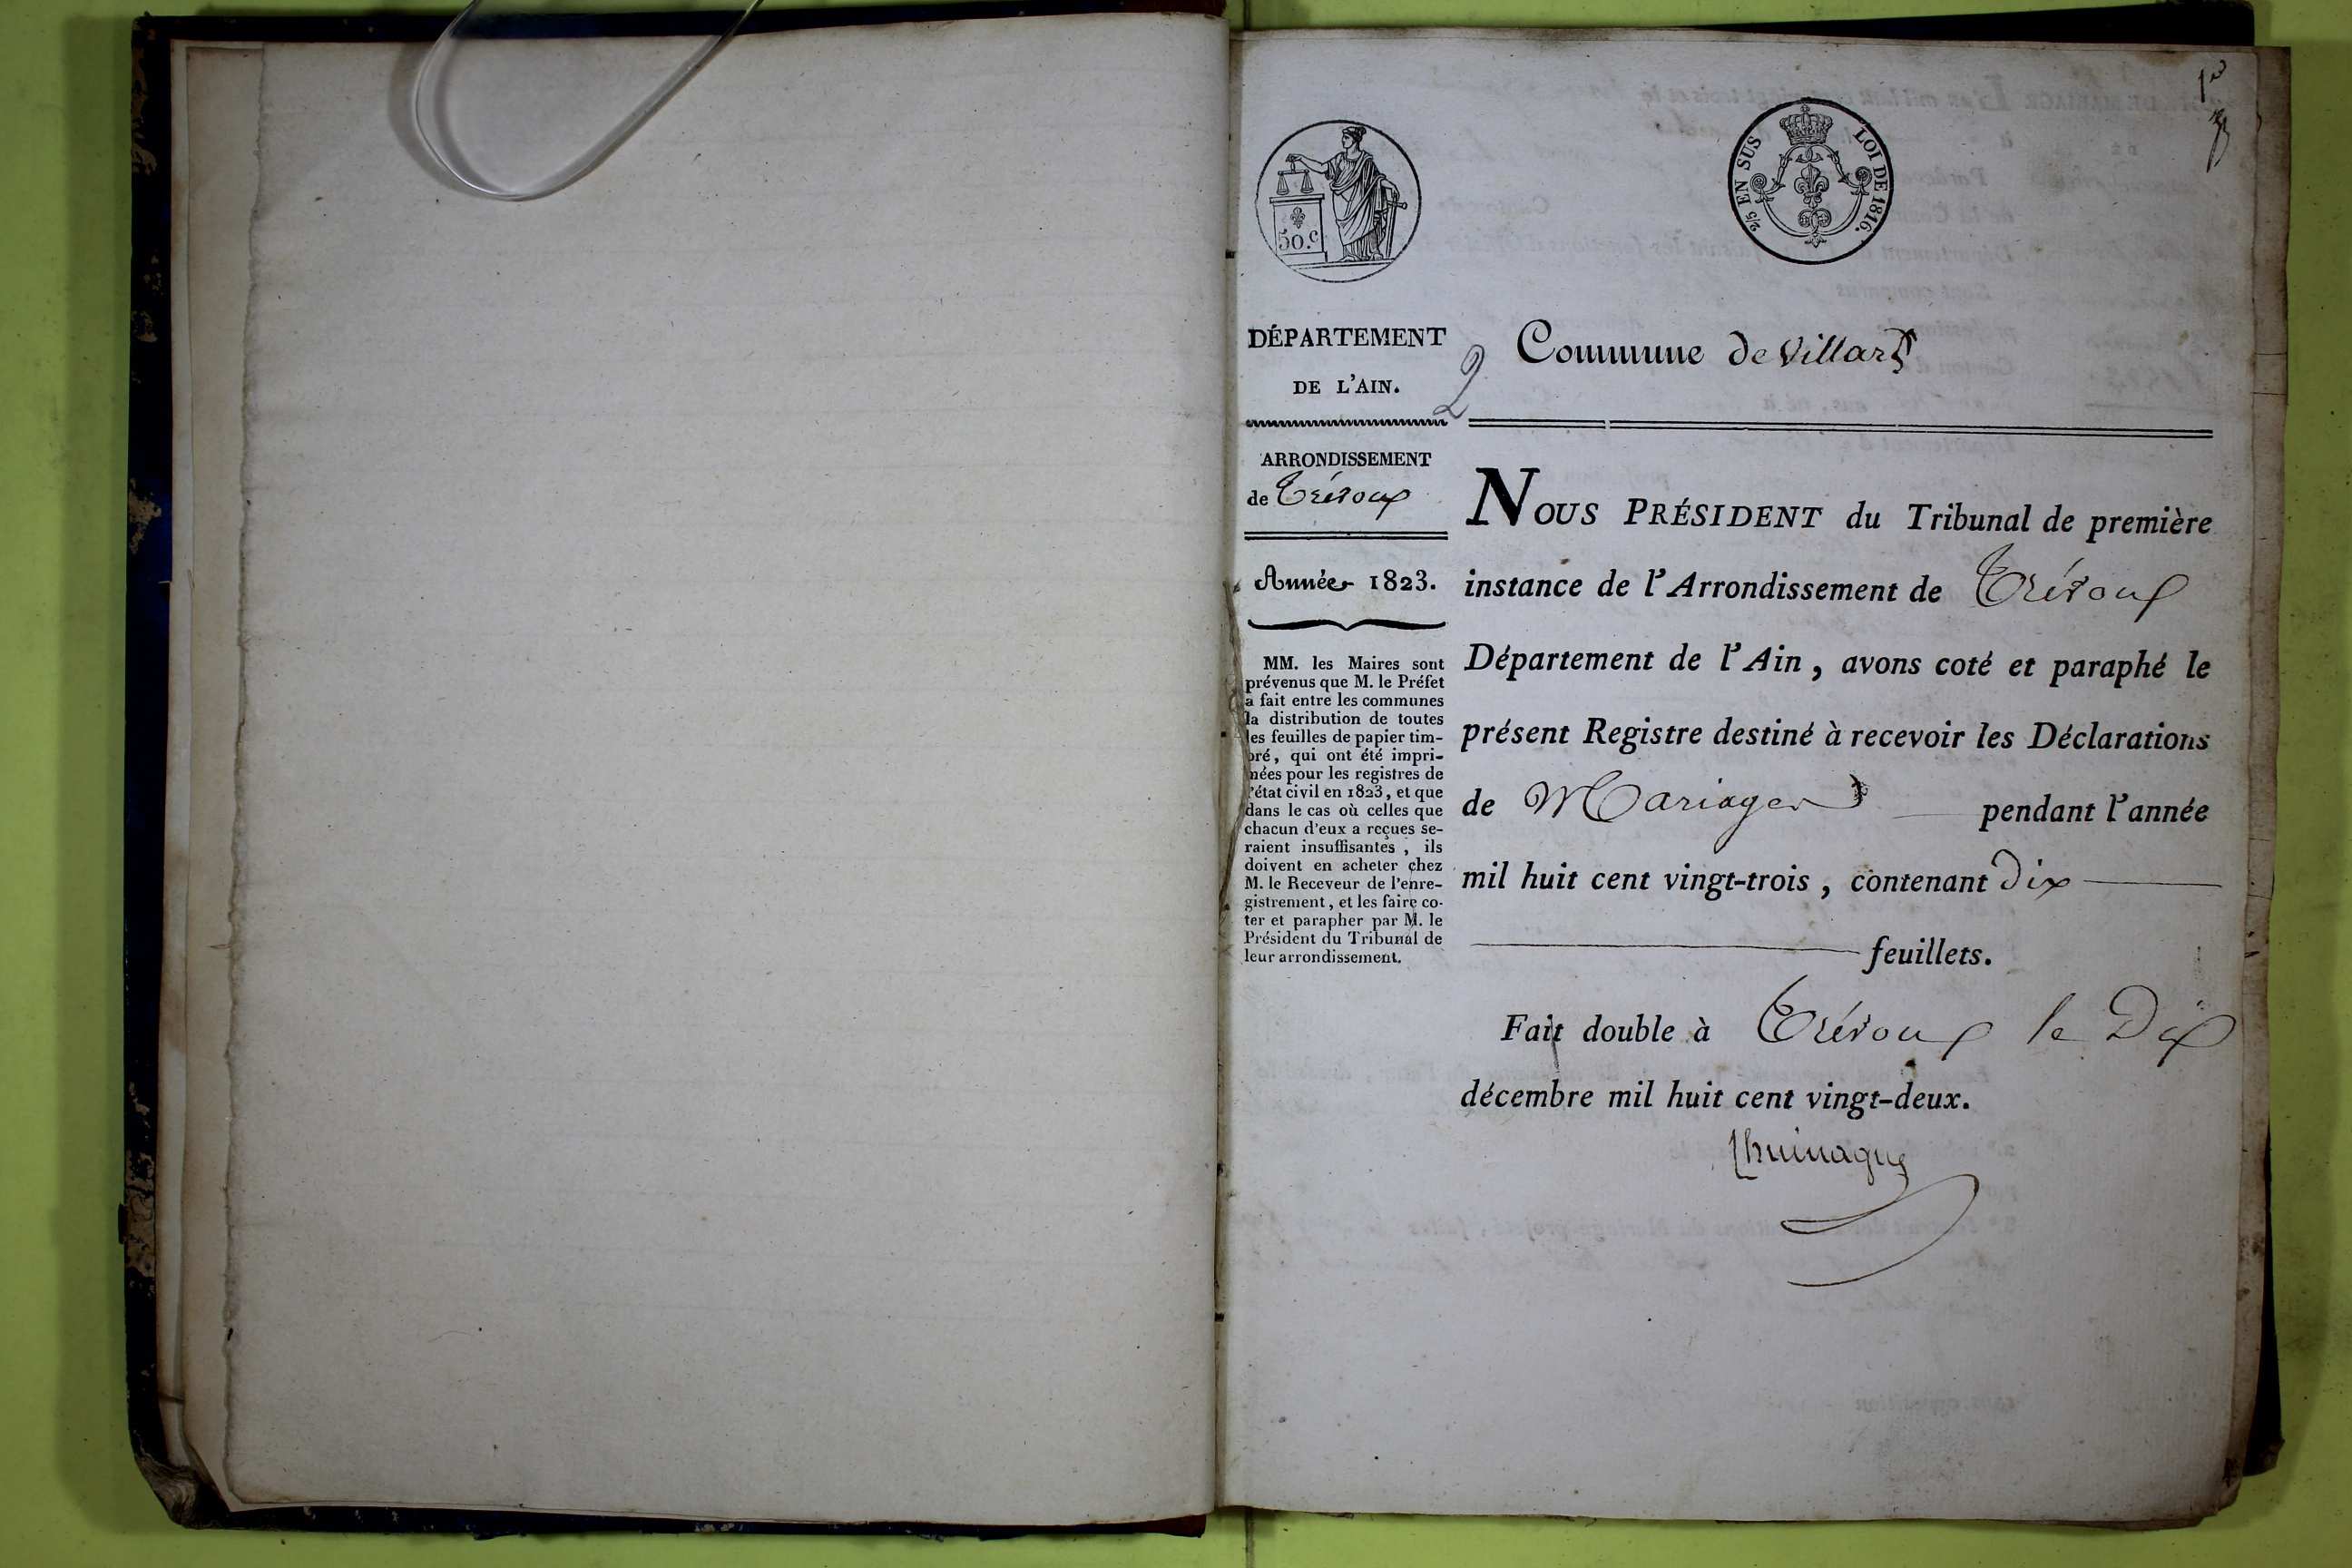 1er
50.c
2/5 EN SUS LOI DE 1816.
DÉPARTEMENT
DE L'AIN.
2
Commune de Villars
ARRONDISSEMENT
de Trévoux
Année 1823.
MM. les Maires sont
prévenus que M. le Préfet
a fait entre les communes
la distribution de toutes
les feuilles de papier tim-
bré, qui ont été impri-
mées pour les registres de
l'état civil en 1823, et que
dans le cas où celles que
chacun d'eux a reçues se-
raient insuffisantes, ils
doivent en acheter chez
M. le Receveur de l'enre-
gistrement, et les faire co-
ter et parapher par M. le
Président du Tribunal de
leur arrondissement.
NOUS PRÉSIDENT du Tribunal de première
instance de l'Arrondissement de Trévoux
Département de l'Ain, avons coté et paraphé le
présent Registre destiné à recevoir les Déclarations
de Mariages pendant l'année
mil huit cent vingt-trois, contenant dix
feuillets.
Fait double à Trévoux le Dix
décembre mil huit cent vingt-deux.